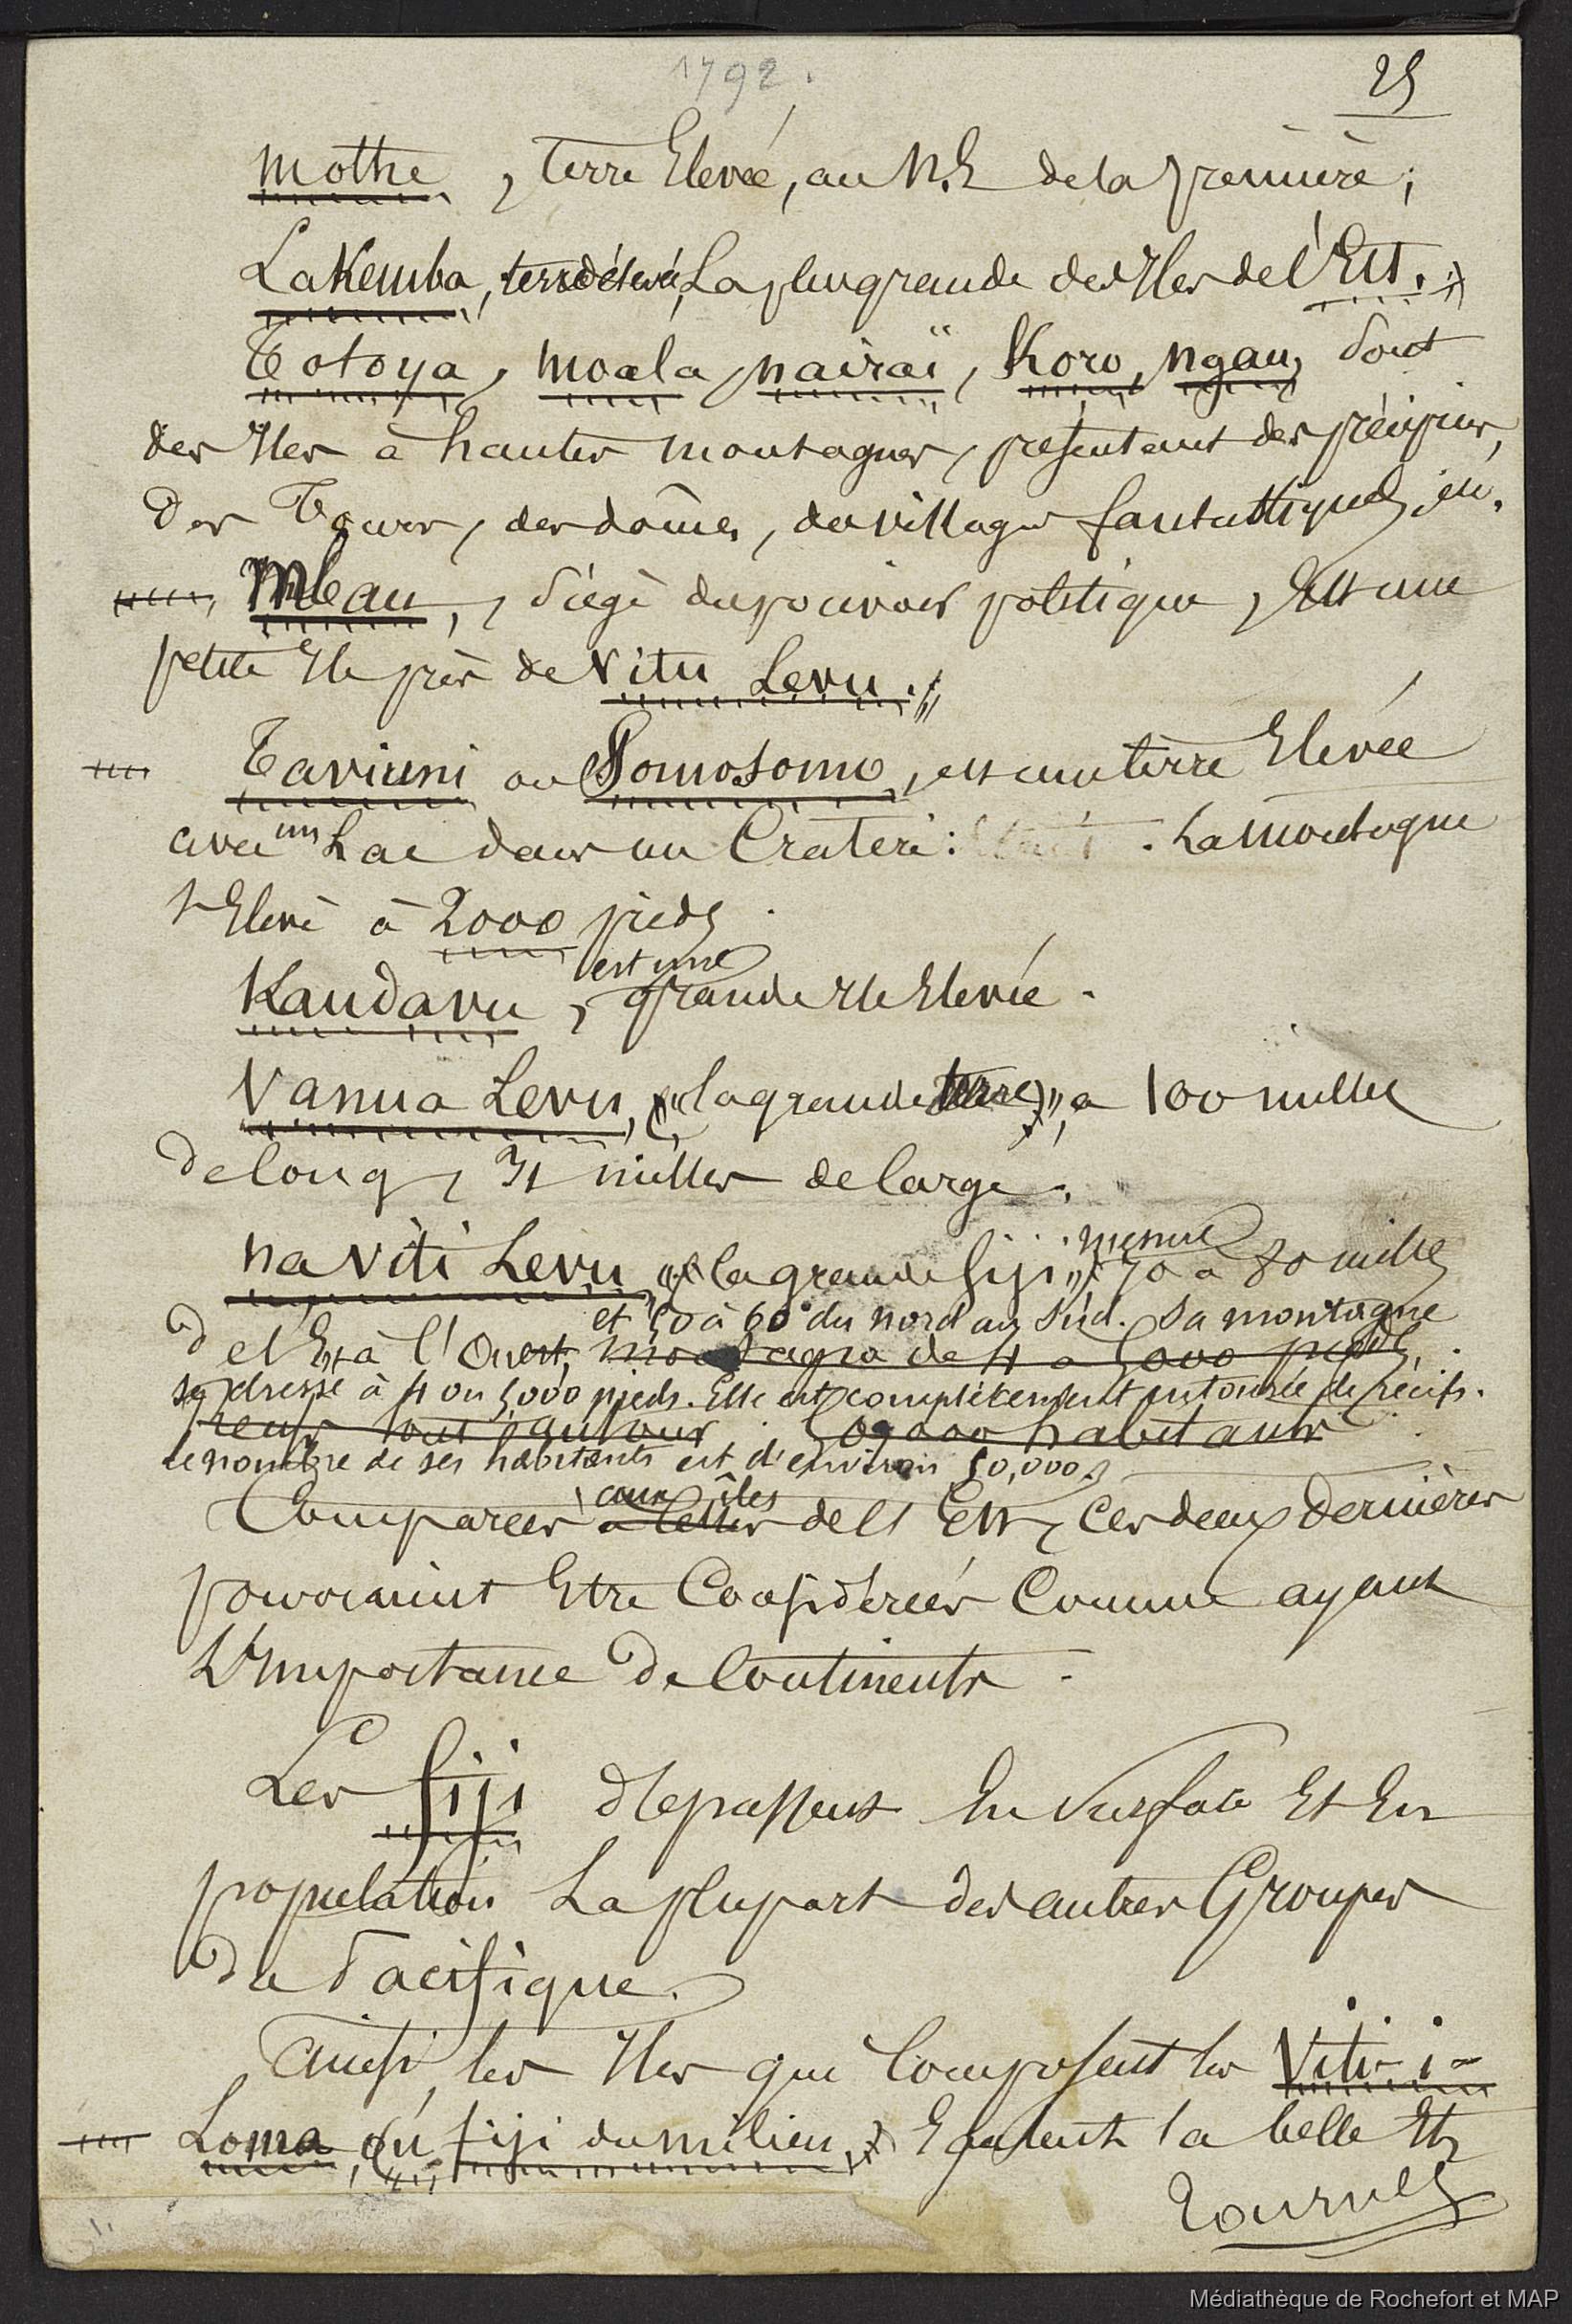 1792.
25
Mothe, terre Elevée, au N.E de la première;
Lakemba, terre élevée, La plus grande des Iles de l'Est.
Totoya, Moala, Naïraï, Koro, Ngau, sont
des Iles à hautes montagnes, présentant des précipices,
Des Tours, des dômes, des villages fantastiques,
Mbau, siège du pouvoir politique, Est une
petite Ile près de Vitu Levu.
Taviuni ou Somosomo, est une terre Elevée
avec un Lac dans un Cratère: . La montagne
s'Elève à 2000 pieds.
est une
Kandavu, grande Ile Elevée.
Vanua Levu, («la grande terre»), a 100 milles
de long, 31 milles de large.
mesure
Na Viti Levu, «la grande fiji» 70 à 80 milles
et 50 à 60 du nord au sud. Sa montagne
de l'Est à l'Ouest, montagne de 4 a 5000 pieds.
se dresse à 4 ou 5,000 pieds. Elle est complètement entourée de récifs.
récifs tout autour. 50,000 habitants
le nombre de ses habitants est d'environ 50,000.
aux îles
Comparées à celles de l'Est, Ces deux Dernières
pouvaient Etre Considérées Comme ayant
L'Importance de Continents.
Les fiji dépassent En Surface Et En
population La plupart des autres Groupes
du Pacifique.
Ainsi, les Iles qui Composent les Viti-i-
Loma, ou fiji du milieu, Egalent la belle Et
Tournez
Médiathèque de Rochefort et MAP